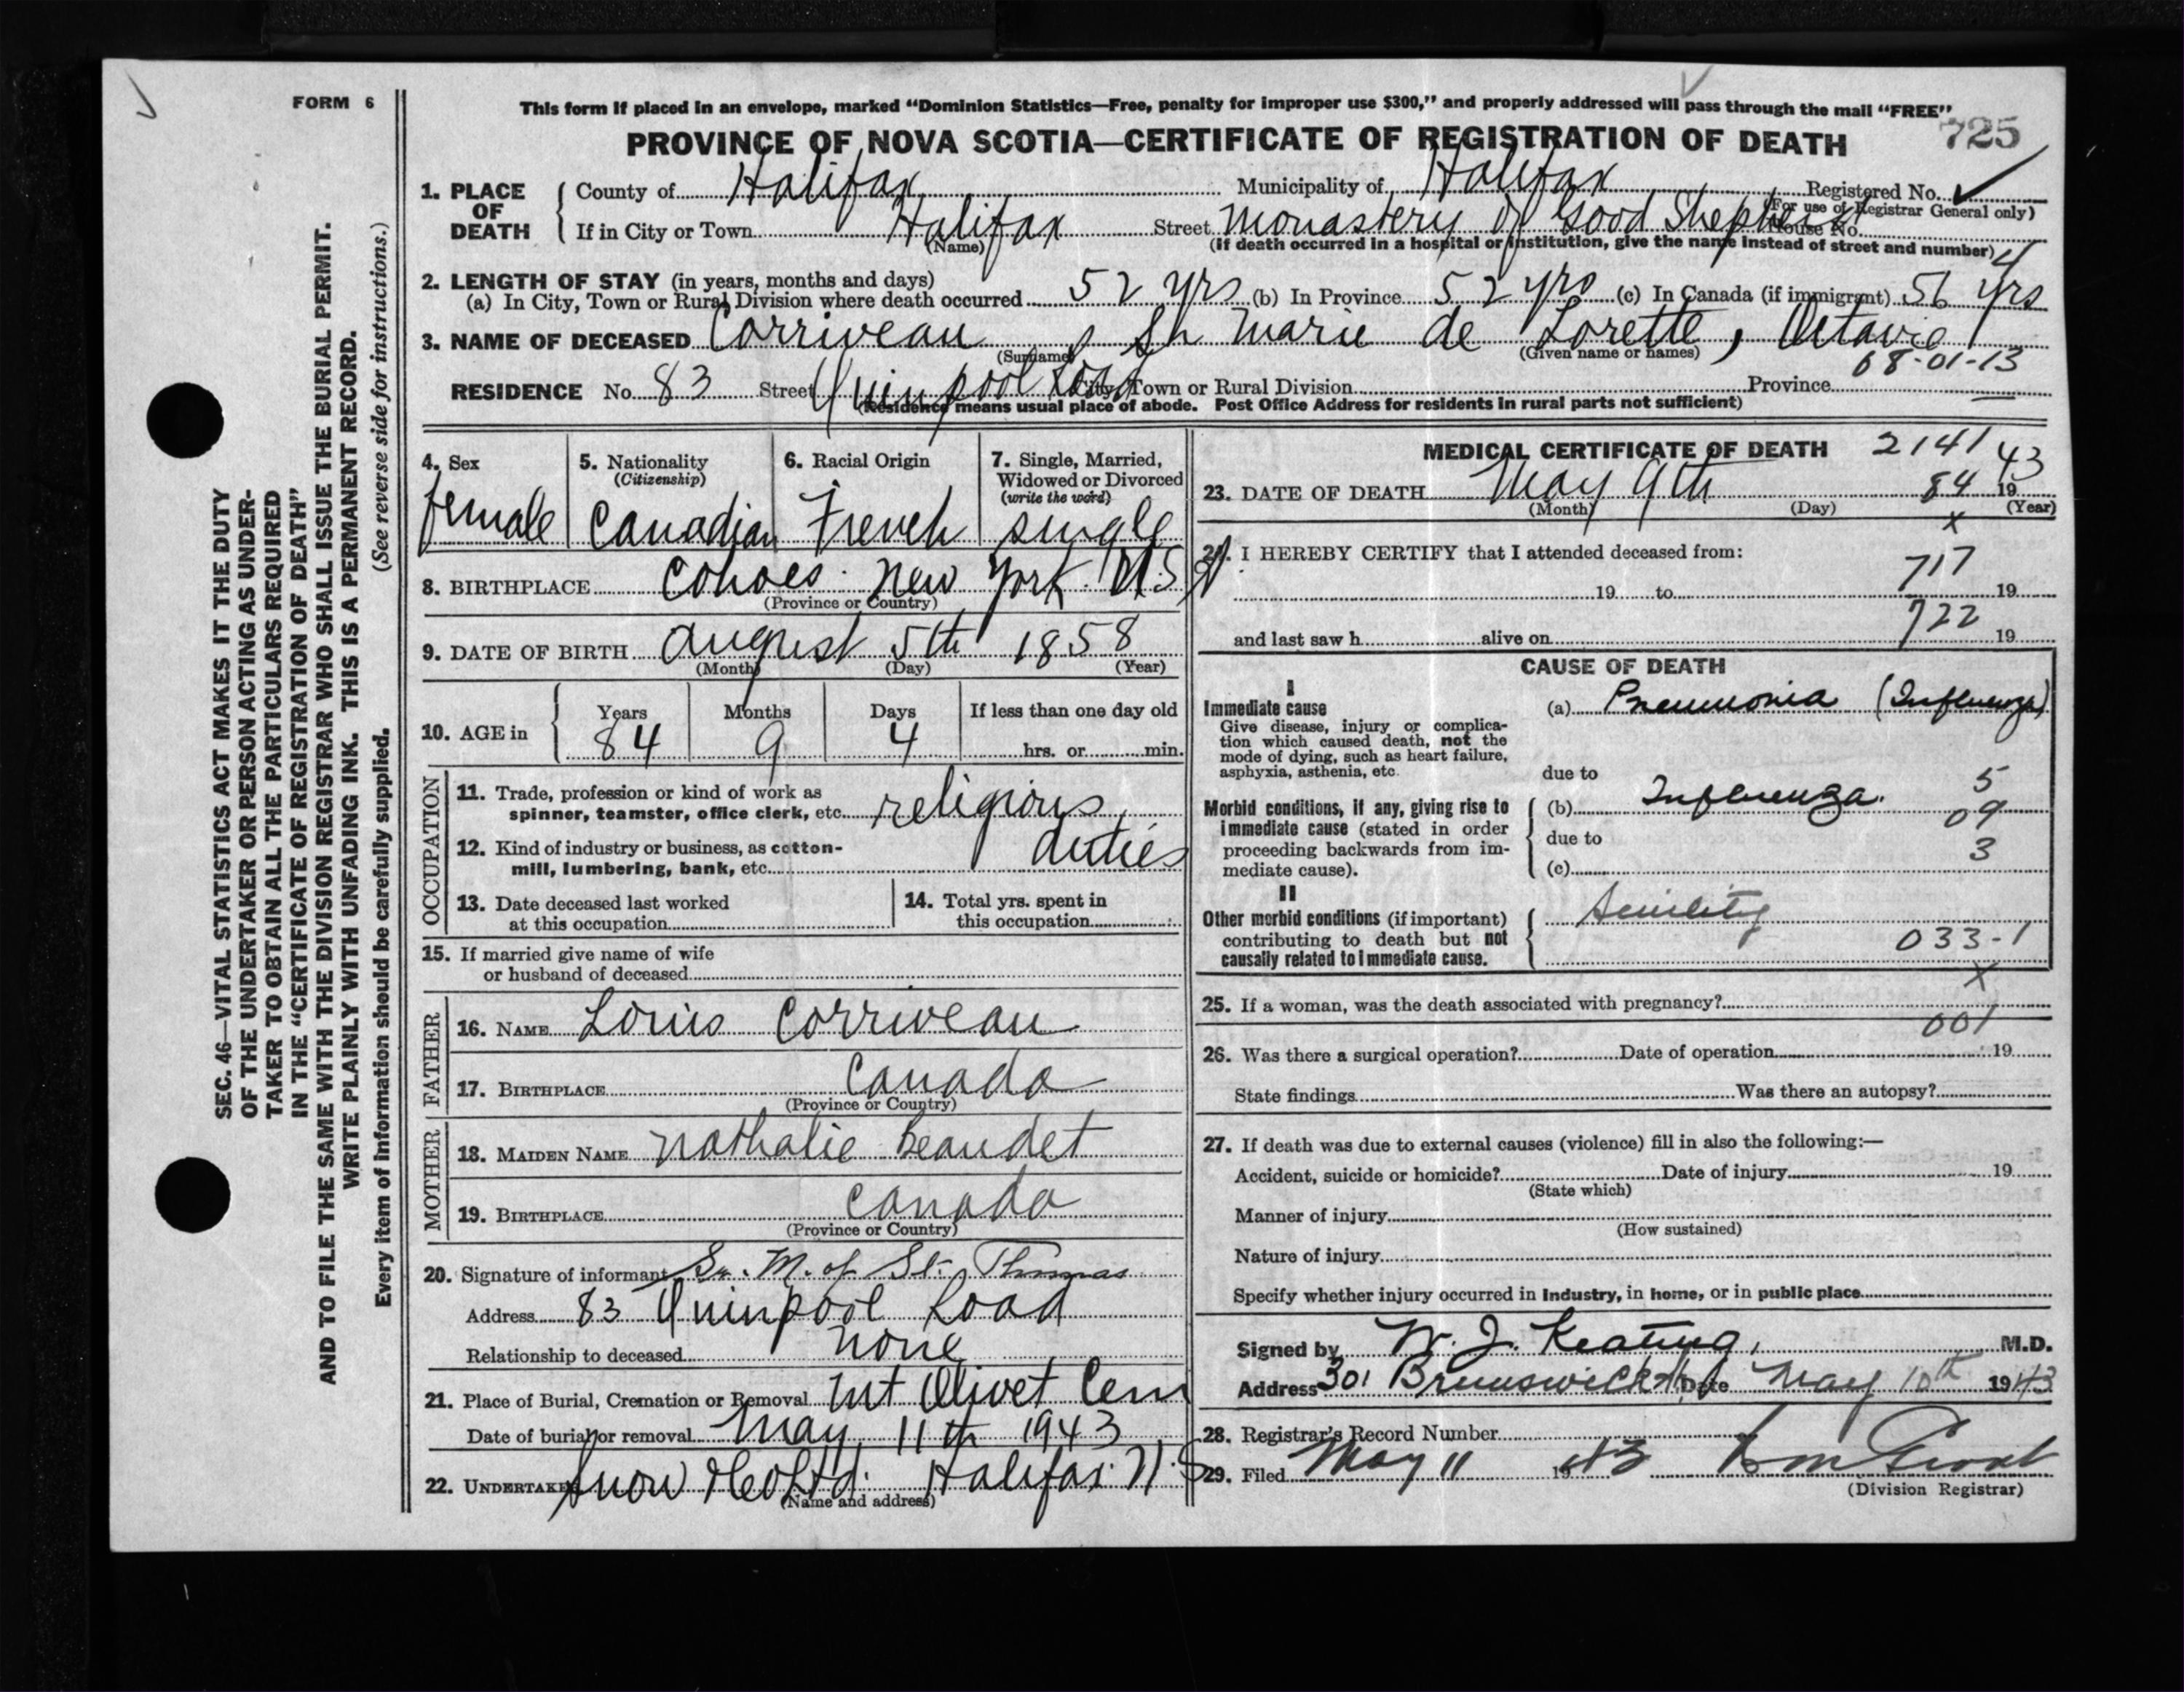 FORM 6
This form if placed in an envelope, marked "Dominion Statistics—Free, penalty for improper use $300," and properly addressed will pass through the mail "FREE"
PROVINCE OF NOVA SCOTIA—CERTIFICATE OF REGISTRATION OF DEATH 725
1. PLACE OF DEATH
County of Halifax Municipality of Halifax Registered No.
(For use of Registrar General only)
If in City or Town Halifax Street Monastery of Good Shepherd House No.
(Name) (If death occurred in a hospital or institution, give the name instead of street and number)
2. LENGTH OF STAY (in years, months and days)
(a) In City, Town or Rural Division where death occurred 52 yrs (b) In Province 52 yrs (c) In Canada (if immigrant) 56 yrs
4
3. NAME OF DECEASED Corriveau, Sr Marie de Lorette, Octavie
(Surname) (Given name or names)
68-01-13
RESIDENCE No. 83 Street Quinpool Road City, Town or Rural Division Province
(Residence means usual place of abode. Post Office Address for residents in rural parts not sufficient)
4. Sex
female
5. Nationality
(Citizenship)
Canadian
6. Racial Origin
French
7. Single, Married,
Widowed or Divorced
(write the word)
single
8. BIRTHPLACE Cohoes. New York. U.S.A.
(Province or Country)
9. DATE OF BIRTH August 5th 1858
(Month) (Day) (Year)
10. AGE in
Years Months Days If less than one day old
84 9 4 hrs. or min.
OCCUPATION
11. Trade, profession or kind of work as
spinner, teamster, office clerk, etc. religious
12. Kind of industry or business, as cotton-
mill, lumbering, bank, etc. duties
13. Date deceased last worked
at this occupation
14. Total yrs. spent in
this occupation
15. If married give name of wife
or husband of deceased
FATHER
16. NAME Louis Corriveau
17. BIRTHPLACE Canada
(Province or Country)
MOTHER
18. MAIDEN NAME Nathalie Beaudet
19. BIRTHPLACE Canada
(Province or Country)
20. Signature of informant Sr. M. of St. Thomas
Address 83 Quinpool Road
Relationship to deceased none
21. Place of Burial, Cremation or Removal Mt Olivet Cem
Date of burial or removal May 11th 1943
22. UNDERTAKER Snow & Co Ltd. Halifax. N.S.
(Name and address)
MEDICAL CERTIFICATE OF DEATH 2141
23. DATE OF DEATH May 9th 84 1943
(Month) (Day) (Year)
x
24. I HEREBY CERTIFY that I attended deceased from:
717
19 to 19
722
and last saw h alive on 19
CAUSE OF DEATH
I
Immediate cause
Give disease, injury or complica-
tion which caused death, not the
mode of dying, such as heart failure,
asphyxia, asthenia, etc.
(a) Pneumonia (Influenza)
due to
5
Morbid conditions, if any, giving rise to
immediate cause (stated in order
proceeding backwards from im-
mediate cause).
(b) Influenza.
09
due to
3
(c)
II
Other morbid conditions (if important)
contributing to death but not
causally related to immediate cause.
Senility
033-1
x
25. If a woman, was the death associated with pregnancy?
001
26. Was there a surgical operation? Date of operation 19
State findings Was there an autopsy?
27. If death was due to external causes (violence) fill in also the following:—
Accident, suicide or homicide? Date of injury 19
(State which)
Manner of injury
(How sustained)
Nature of injury
Specify whether injury occurred in industry, in home, or in public place
Signed by W. J. Keating, M.D.
Address 301 Brunswick St Date May 10th 1943
28. Registrar's Record Number
29. Filed May 11 1943
(Division Registrar)
SEC. 46—VITAL STATISTICS ACT MAKES IT THE DUTY
OF THE UNDERTAKER OR PERSON ACTING AS UNDER-
TAKER TO OBTAIN ALL THE PARTICULARS REQUIRED
IN THE "CERTIFICATE OF REGISTRATION OF DEATH"
AND TO FILE THE SAME WITH THE DIVISION REGISTRAR WHO SHALL ISSUE THE BURIAL PERMIT.
WRITE PLAINLY WITH UNFADING INK. THIS IS A PERMANENT RECORD.
(See reverse side for instructions.)
Every item of information should be carefully supplied.